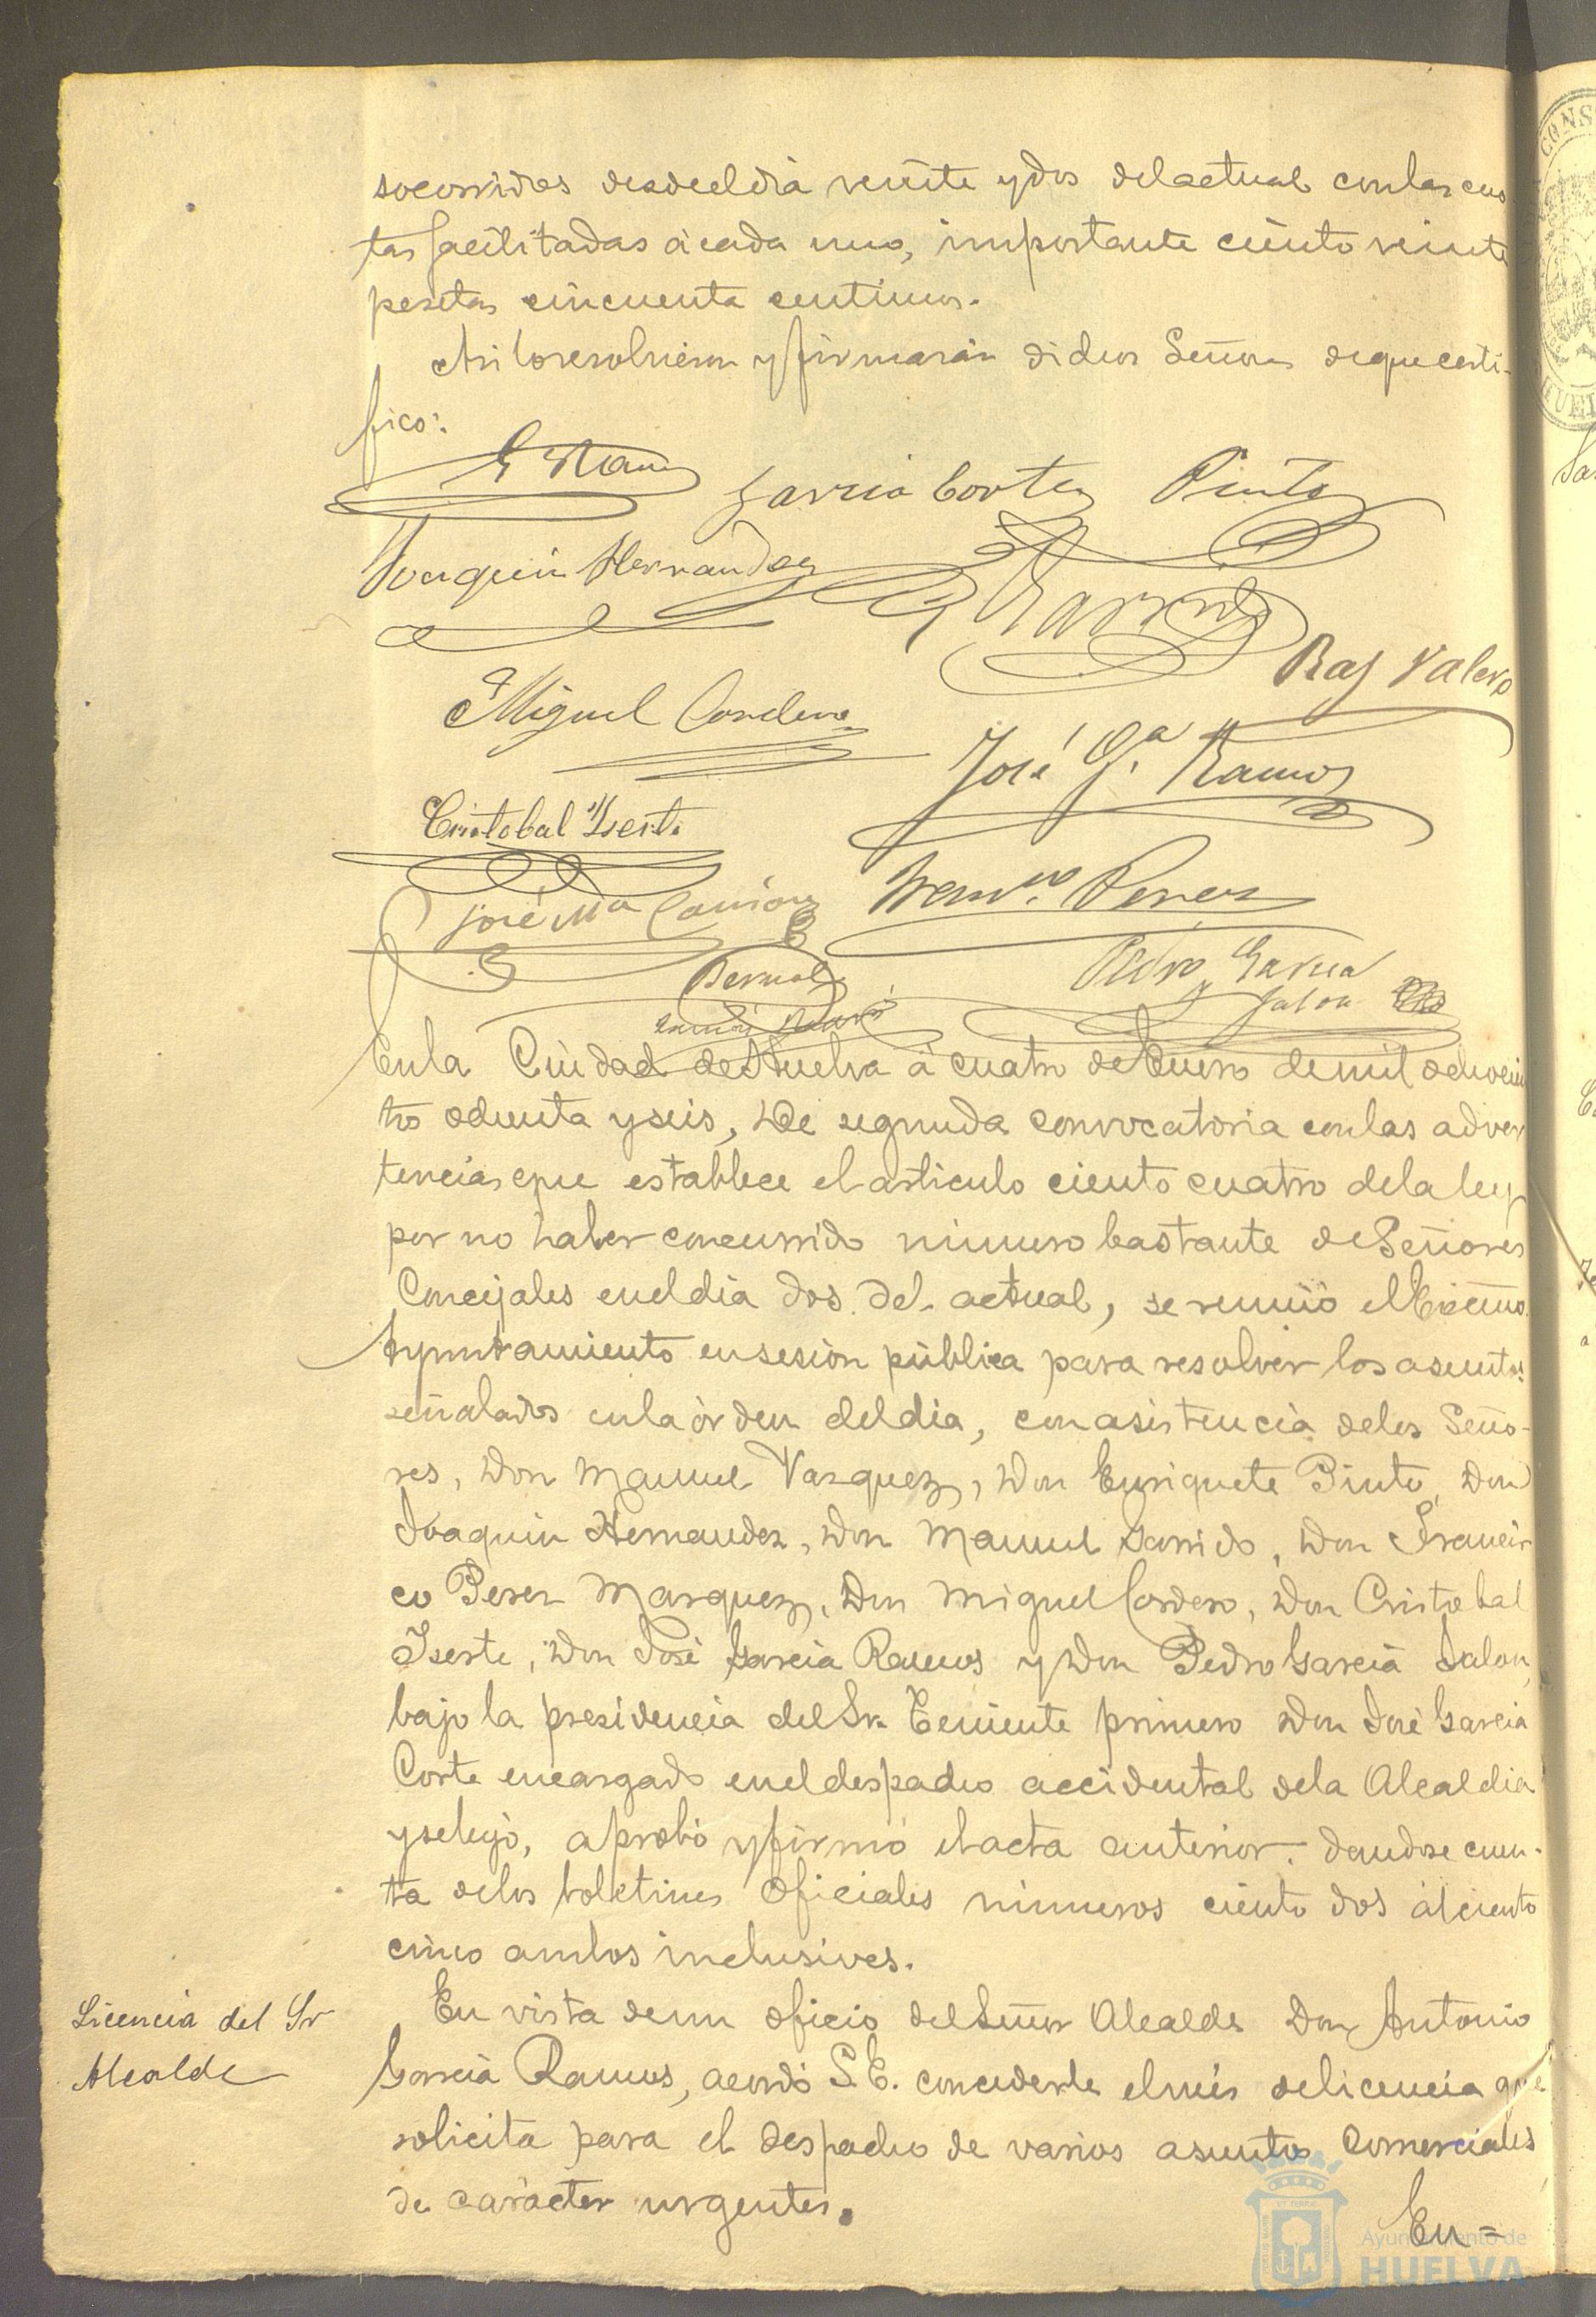 socorridos desde el dia veinte y dos del actual con las cuo
tas facilitadas á cada uno, importante ciento veinte
pesetas cincuenta centimos.
Asi lo resolvieron y firmarán dichos Señores de que certi-
fico:
Garcia Corte Pinto
Joaquin Hernandez
Garrido
Miguel Cordero
José G.ª Ramos
Cristobal Yserte
José M.ª
Fran.co Perez
Bernal
Pedro Garcia
Jalon
En la Ciudad de Huelva á cuatro de Enero de mil ochocien
tos ochenta y seis, De segunda convocatoria con las adver
tencias que establece el articulo ciento cuatro de la ley
por no haber concurrido número bastante de Señores
Concejales en el dia dos del actual, se reunió el Excmo.
Ayuntamiento en sesion pública para resolver los asuntos
señalados en la órden del dia, con asistencia de los Seño-
res, Don Manuel Vazquez, Don Enriquete Pinto, Don
Joaquin Hernandez, Don Manuel Garrido, Don Francis
co Perez Marquez, Don Miguel Cordero, Don Cristobal
Iserte, Don José Garcia Ramos y Don Pedro Garcia Jalon,
bajo la presidencia del Sr. Teniente primero Don José Garcia
Corte encargado en el despacho accidental de la Alcaldia
y se leyó, aprobó y firmó el acta anterior. dandose cuen-
ta de los boletines Oficiales números ciento dos al ciento
cinco ambos inclusives.
Licencia del Sr
Alcalde
En vista de un oficio del Señor Alcalde Don Antonio
Garcia Ramos, acordó S.E. concederle el mes de licencia que
solicita para el despacho de varios asuntos Comerciales
de carácter urgentes.
En=
Ayuntamiento de
HUELVA